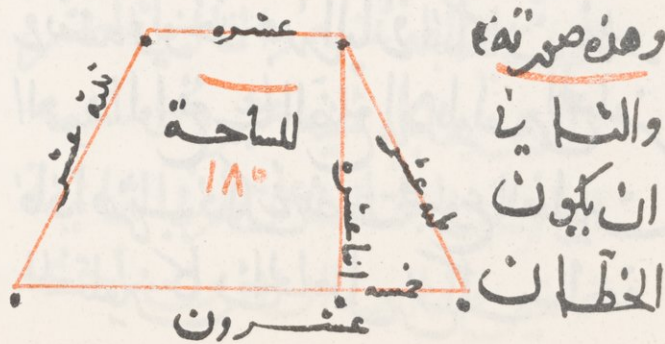 وهذه صورته
والثاني
ان يكون
الخطان
عشره
ثلثة عشر
المساحة
١٨٠
ثلثة عشر
اثنا عشره
خمسه
عشرون